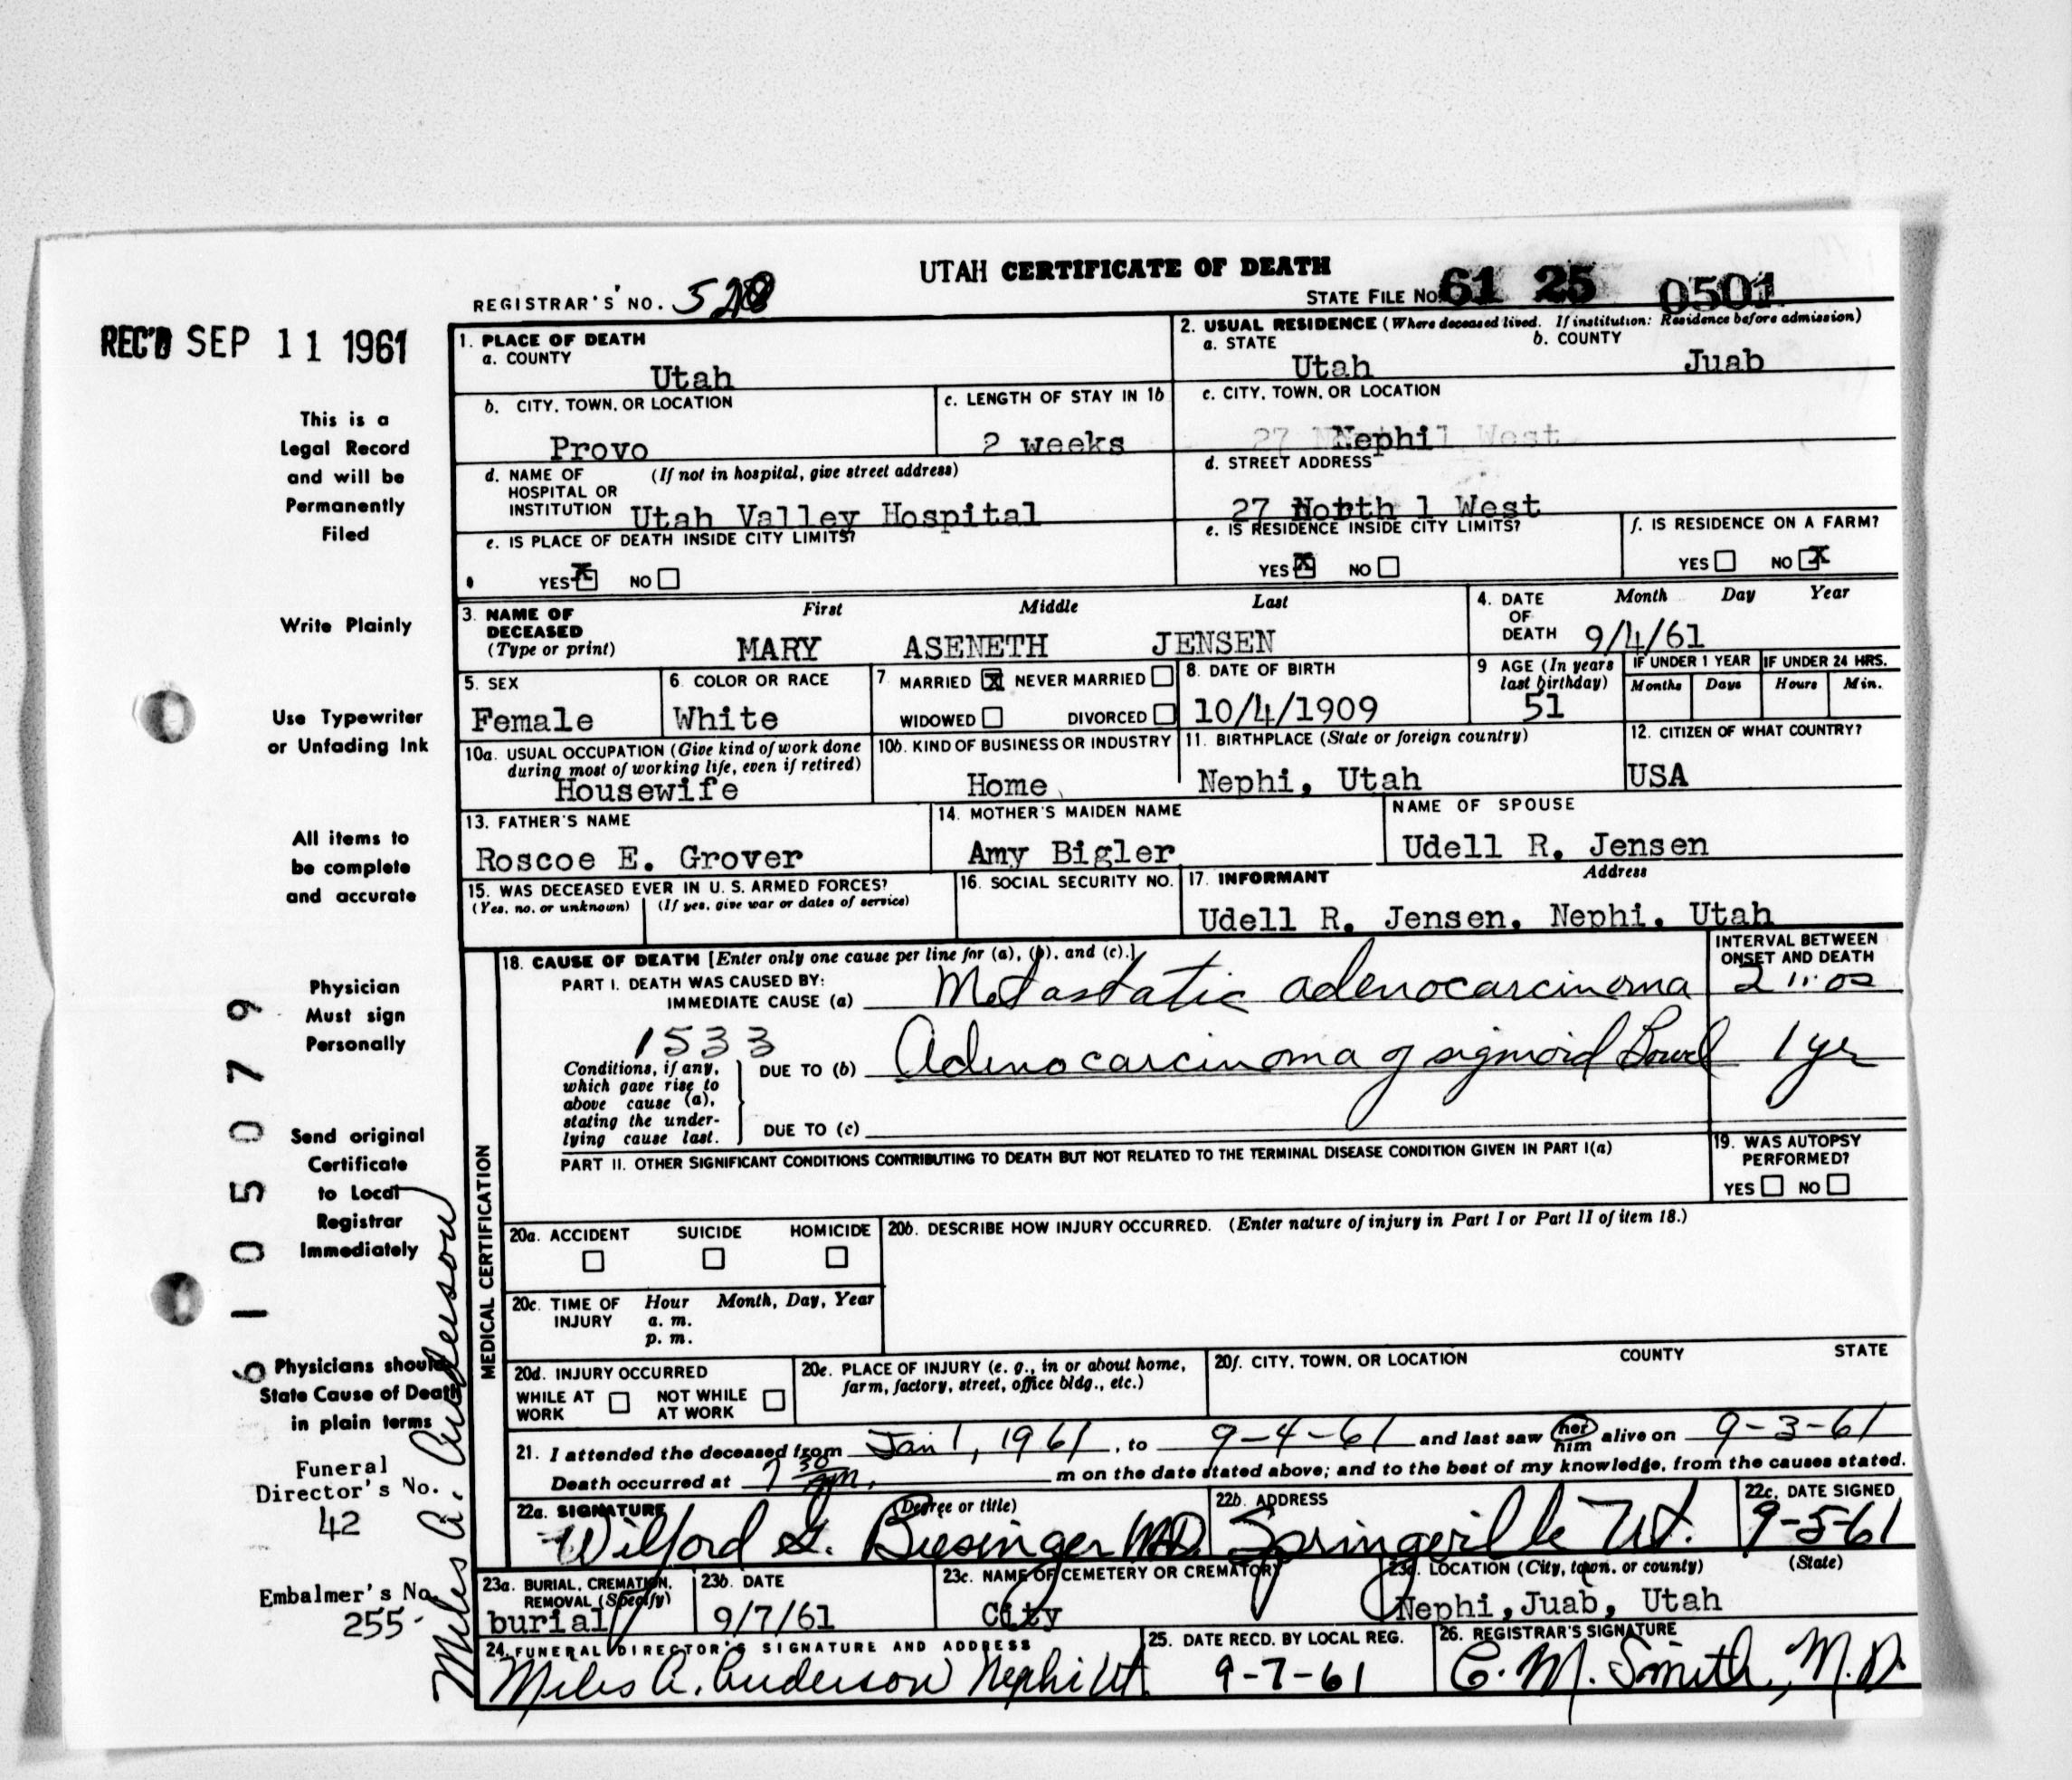 UTAH CERTIFICATE OF DEATH
REGISTRAR'S NO.
STATE FILE NO. 61 25 0501
REC'D SEP 11 1961
This is a
Legal Record
and will be
Permanently
Filed
Write Plainly
Use Typewriter
or Unfading Ink
All items to
be complete
and accurate
Physician
Must sign
Personally
Send original
Certificate
to Local
Registrar
Immediately
Physicians should
State Cause of Death
in plain terms
Funeral
Director's No.
42
Embalmer's No.
255-
61105079
Miles A. Anderson
1. PLACE OF DEATH
a. COUNTY
Utah
2. USUAL RESIDENCE (Where deceased lived. If institution: Residence before admission)
a. STATE b. COUNTY
Utah Juab
b. CITY, TOWN, OR LOCATION
Provo
c. LENGTH OF STAY IN 1b
2 weeks
c. CITY, TOWN, OR LOCATION
Nephi
d. NAME OF HOSPITAL OR INSTITUTION (If not in hospital, give street address)
Utah Valley Hospital
d. STREET ADDRESS
27 North 1 West
e. IS PLACE OF DEATH INSIDE CITY LIMITS?
YES X NO
e. IS RESIDENCE INSIDE CITY LIMITS?
YES X NO
f. IS RESIDENCE ON A FARM?
YES NO X
3. NAME OF DECEASED (Type or print)
First Middle Last
MARY ASENETH JENSEN
4. DATE OF DEATH Month Day Year
9/4/61
5. SEX
Female
6. COLOR OR RACE
White
7. MARRIED X NEVER MARRIED
WIDOWED DIVORCED
8. DATE OF BIRTH
10/4/1909
9 AGE (In years last birthday)
51
IF UNDER 1 YEAR
Months Days
IF UNDER 24 HRS.
Hours Min.
10a. USUAL OCCUPATION (Give kind of work done during most of working life, even if retired)
Housewife
10b. KIND OF BUSINESS OR INDUSTRY
Home
11. BIRTHPLACE (State or foreign country)
Nephi, Utah
12. CITIZEN OF WHAT COUNTRY?
USA
13. FATHER'S NAME
Roscoe E. Grover
14. MOTHER'S MAIDEN NAME
Amy Bigler
NAME OF SPOUSE
Udell R. Jensen
15. WAS DECEASED EVER IN U. S. ARMED FORCES?
(Yes, no, or unknown) (If yes, give war or dates of service)
16. SOCIAL SECURITY NO.
17. INFORMANT Address
Udell R. Jensen, Nephi, Utah
MEDICAL CERTIFICATION
18. CAUSE OF DEATH [Enter only one cause per line for (a), (b), and (c).]
INTERVAL BETWEEN ONSET AND DEATH
PART I. DEATH WAS CAUSED BY:
IMMEDIATE CAUSE (a) Metastatic adenocarcinoma
1533
Conditions, if any, which gave rise to above cause (a), stating the underlying cause last.
DUE TO (b) Adenocarcinoma of sigmoid Bowel 1 yr
DUE TO (c)
PART II. OTHER SIGNIFICANT CONDITIONS CONTRIBUTING TO DEATH BUT NOT RELATED TO THE TERMINAL DISEASE CONDITION GIVEN IN PART I(a)
19. WAS AUTOPSY PERFORMED?
YES NO
20a. ACCIDENT SUICIDE HOMICIDE
20b. DESCRIBE HOW INJURY OCCURRED. (Enter nature of injury in Part I or Part II of item 18.)
20c. TIME OF INJURY Hour Month, Day, Year
a. m.
p. m.
20d. INJURY OCCURRED
WHILE AT WORK NOT WHILE AT WORK
20e. PLACE OF INJURY (e. g., in or about home, farm, factory, street, office bldg., etc.)
20f. CITY, TOWN, OR LOCATION COUNTY STATE
21. I attended the deceased from Jan 1, 1961, to 9-4-61 and last saw her him alive on 9-3-61
Death occurred at 7 30 m on the date stated above; and to the best of my knowledge, from the causes stated.
22a. SIGNATURE (Degree or title)
Wilford G. Biesinger M.D.
22b. ADDRESS
Springville Ut.
22c. DATE SIGNED
9-5-61
23a. BURIAL, CREMATION, REMOVAL (Specify)
burial
23b. DATE
9/7/61
23c. NAME OF CEMETERY OR CREMATORY
City
23d. LOCATION (City, town, or county) (State)
Nephi, Juab, Utah
24. FUNERAL DIRECTOR'S SIGNATURE AND ADDRESS
Miles A. Anderson Nephi Ut.
25. DATE RECD. BY LOCAL REG.
9-7-61
26. REGISTRAR'S SIGNATURE
C. M. Smith, M.D.